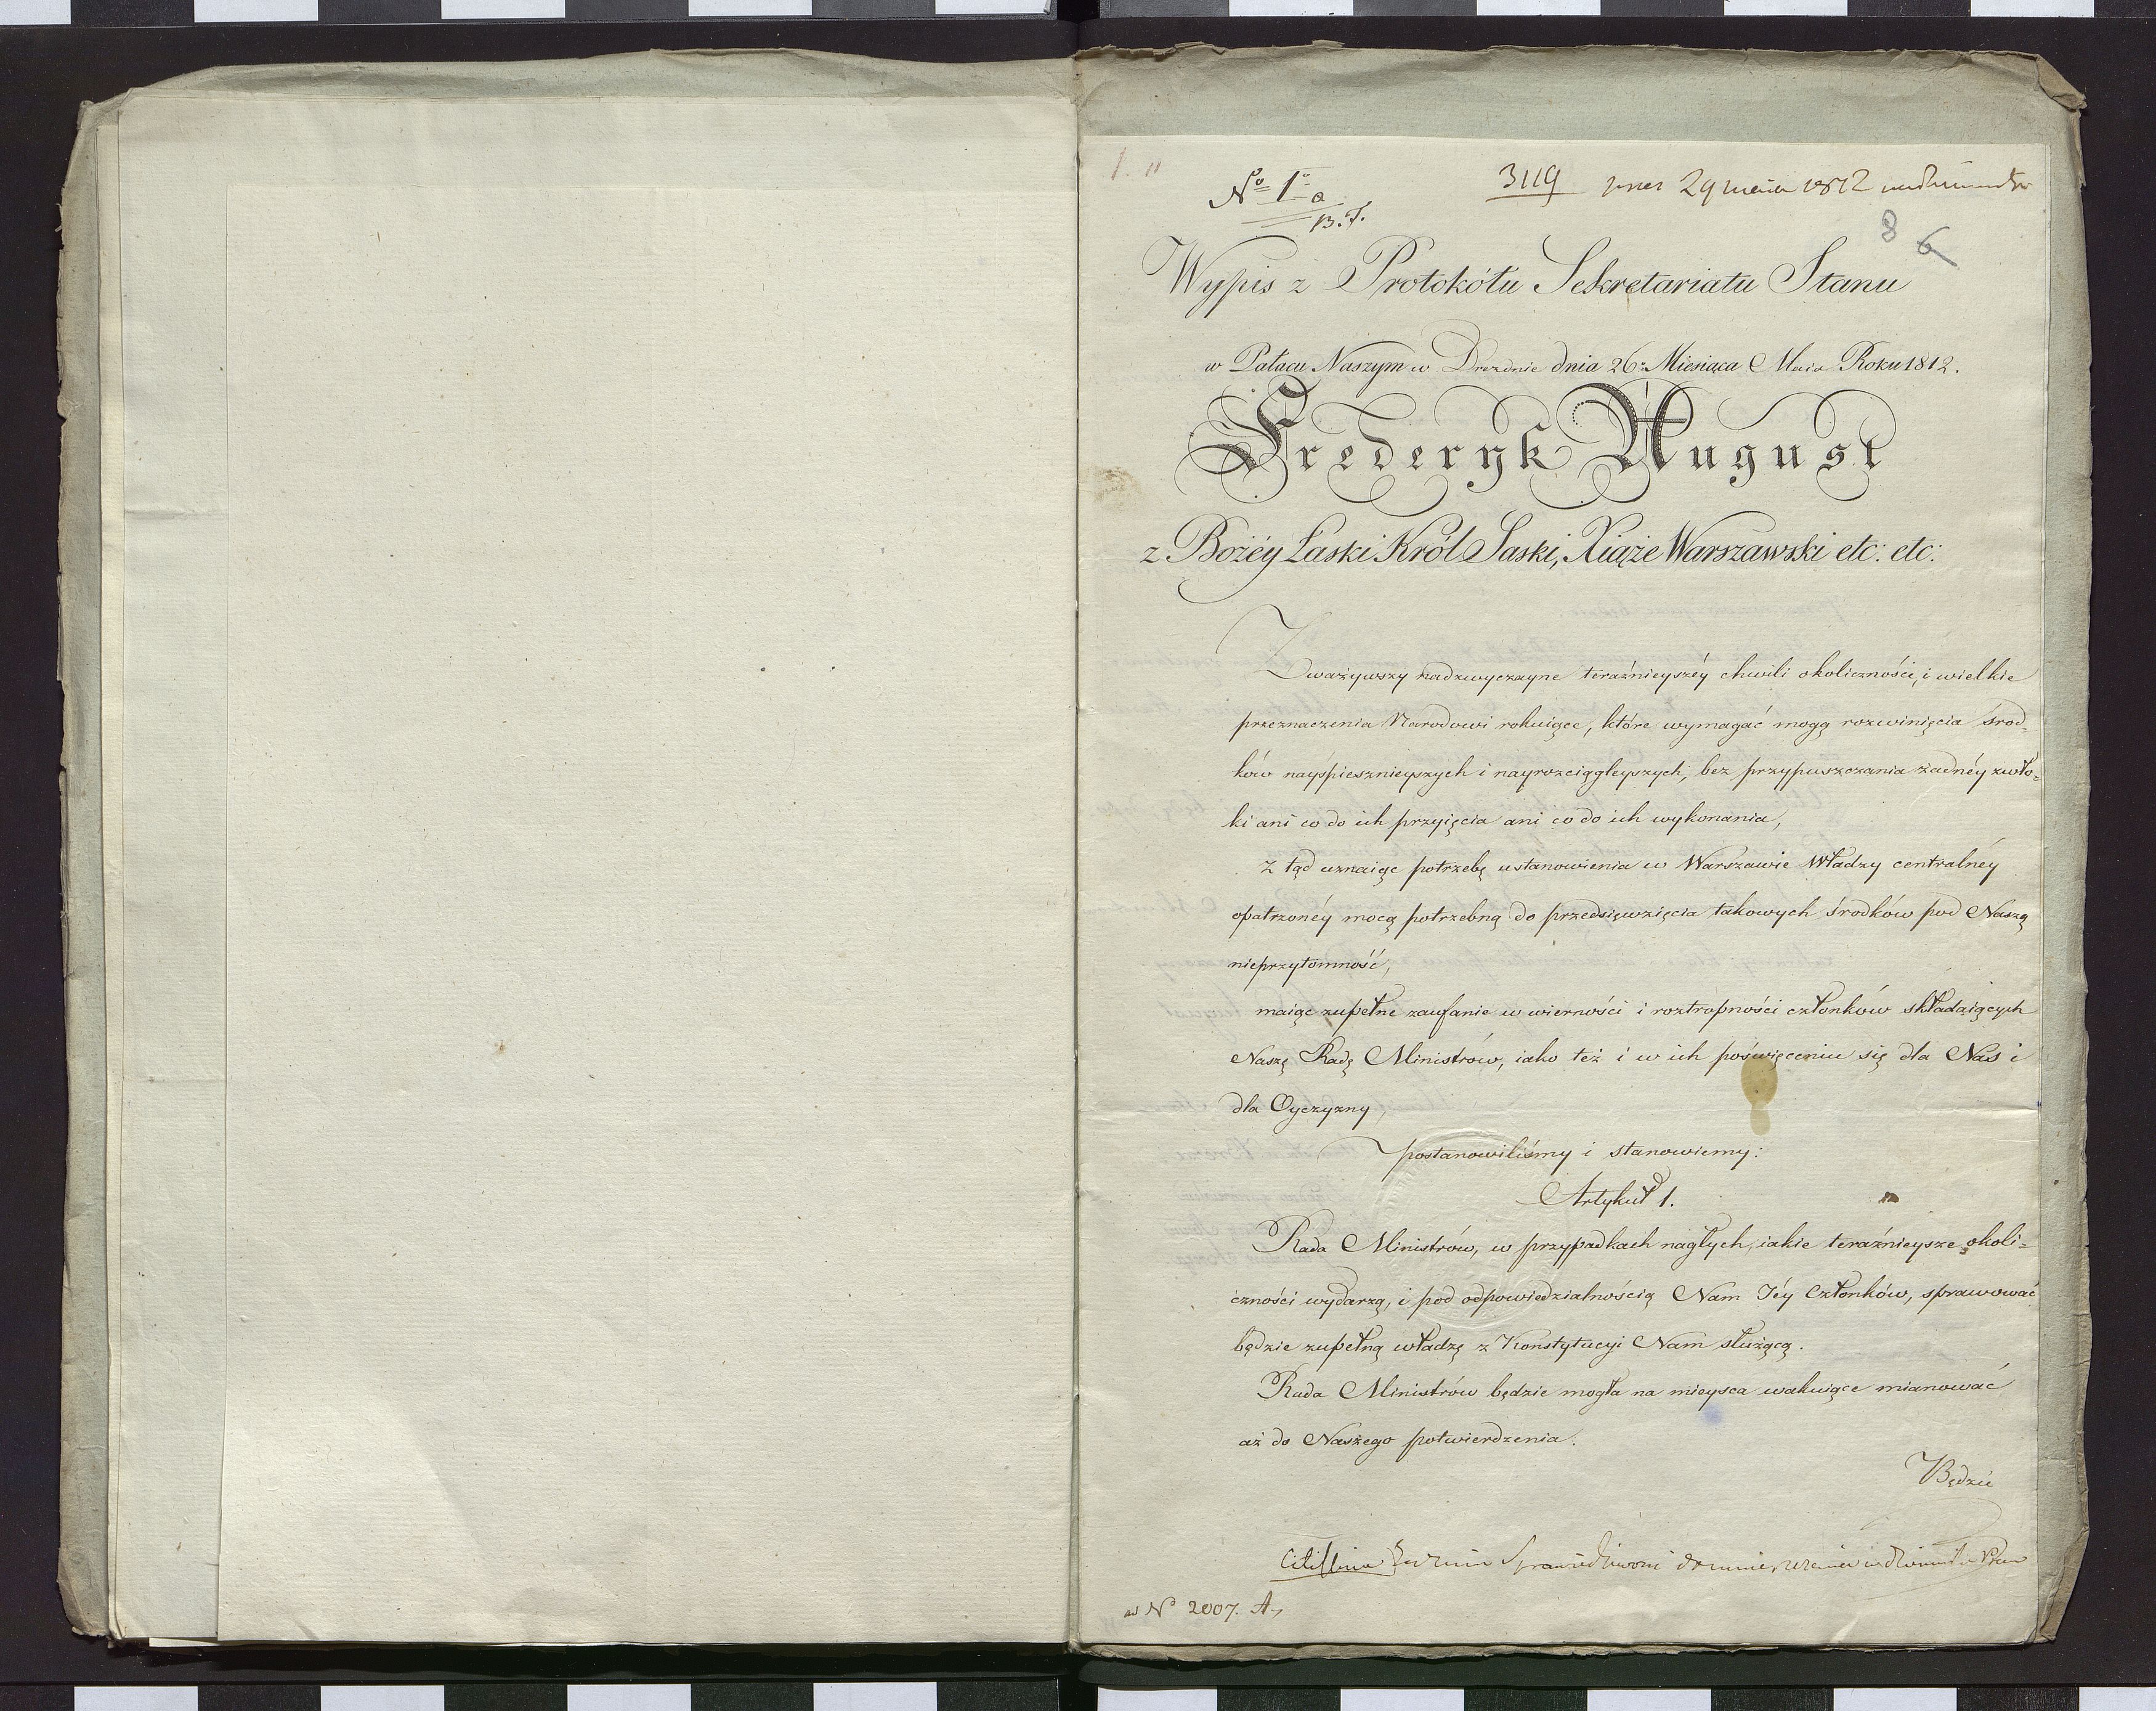 1.
Nº 1º a
B.T.
3119 pres 29 maia 1812
8 6
Wypis z Protokółu Sekretariatu Stanu
w Pałacu Naszym w Dreznie dnia 26º Miesiąca Maia Roku 1812.
Frederyk August
z Bożéy Łaski Król Saski, Xiąże Warszawski etc: etc:
Zważywszy nadzwyczayne teraźnieyszéy chwili okoliczności, i wielkie
przeznaczenia Narodowi rokuiące, które wymagać mogą rozwinięcia środ-
ków nayśpiesznieyszych i nayrozciągleyszych, bez przypuszczania żadnéy zwło-
ki ani co do ich przyięcia ani co do ich wykonania,
z tąd uznaiąc potrzebę ustanowienia w Warszawie Władzy centralnéy
opatrzonéy mocą potrzebną do przedsięwzięcia takowych środków pod Naszą
nieprzytomność,
maiąc zupełne zaufanie w wierności i roztropności członków składaiących
Naszę Radę Ministrów, iako też i w ich poświęceniu się dla Nas i
dla Oyczyzny,
postanowiliśmy i stanowiemy:
Artykuł 1.
Rada Ministrów, w przypadkach nagłych, iakie teraźnieysze okoli-
czności wydarzą, i pod odpowiedzialnością Nam Jéy Członków, sprawować
będzie zupełną władzę z Konstytucyi Nam służącą.
Rada Ministrów będzie mogła na mieysca wakuiące mianować
aż do Naszego potwierdzenia.
Będzie
Citissime
ad Nº 2007. A.